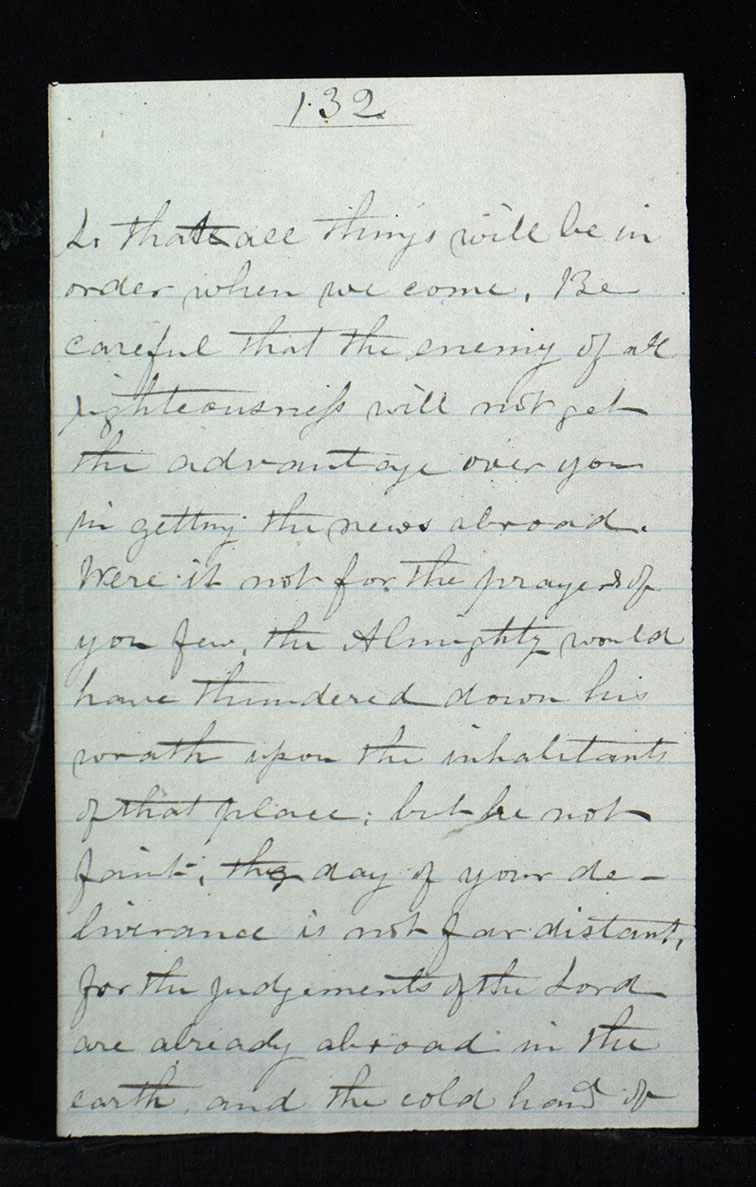 132
& that all things will be in
order when we come. Be
careful that the enemy of all
righteousness will not get
the advantage over you
in getting the news abroad.
Were it not for the prayers of
you few, the Almighty would
have thundered down his
wrath upon the inhabitants
of that place; but be not
faint, the day of your de-
liverance is not far distant,
for the judgements of the Lord
are already abroad in the
earth, and the cold hand of